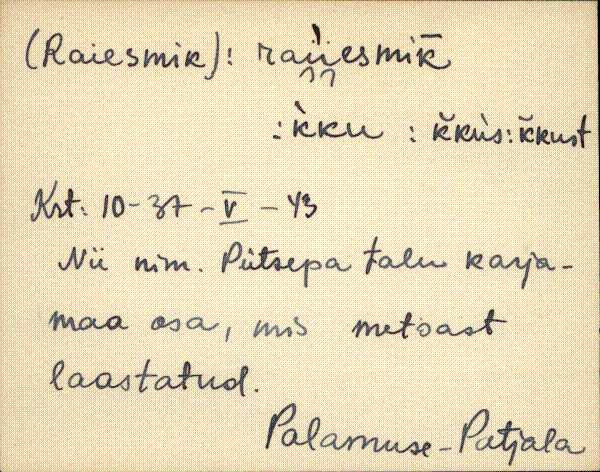 (Raiesmik): raiiesmik̄
: k̀ku : k̆kus: k̆kust
Krt: 10-37-V-43
Nii nim. Piitsepa talu karja-
maa osa, mis metsast
laastatud.
Palamuse-Patjala